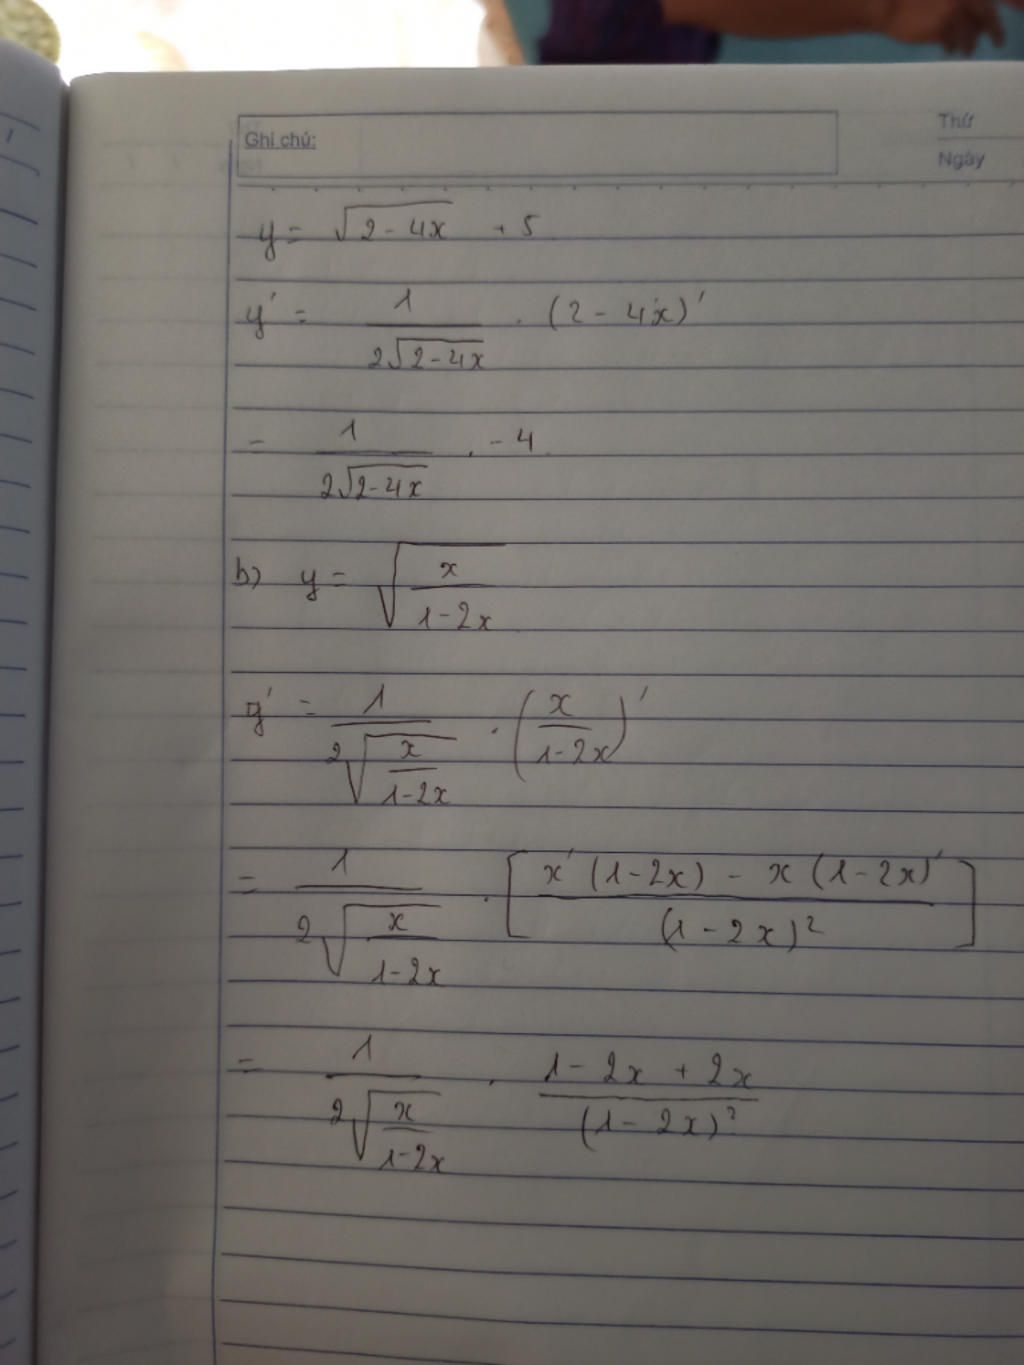 Ghi chú:
Thứ
Ngày
y = √(2 - 4x) + 5
y' = 1/(2√(2-4x)) . (2 - 4x)'
= 1/(2√(2-4x)) . - 4
b) y = √(x/(1-2x))
y' = 1/(2√(x/(1-2x))) . (x/(1-2x))'
= 1/(2√(x/(1-2x))) . [(x'(1-2x) - x(1-2x)')/(1-2x)²]
= 1/(2√(x/(1-2x))) . (1-2x+2x)/(1-2x)²